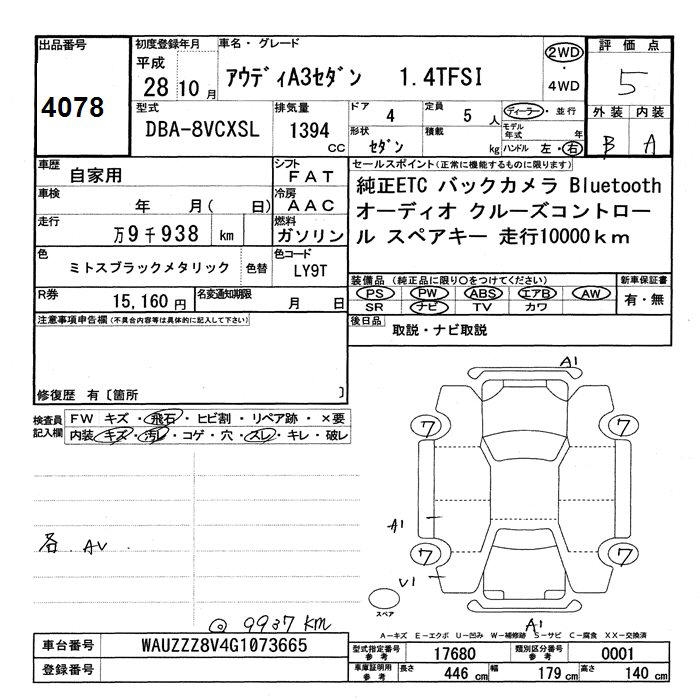 出品番号
4078
初度登録年月
平成
28 10 月
車名・グレード
アウディA3セダン 1.4TFSI
2WD
・
4WD
評価点
5
外装 内装
B A
型式
DBA-8VCXSL
排気量
1394
CC
ドア 4
定員 5 人
ディーラー・並行
モデル年式 年
形状 セダン
積載 kg
ハンドル 左・右
車歴 自家用
シフト FAT
車検 年 月( 日)
冷房 AAC
走行 万 9 千 938 km
燃料 ガソリン
色 ミトスブラックメタリック 色替
色コード LY9T
R券 15,160 円
名変通知期限 月 日
セールスポイント(正常に機能するものに限ります)
純正ETC バックカメラ Bluetooth
オーディオ クルーズコントロー
ル スペアキー 走行10000km
装備品 (純正品に限り○をつけてください)
新車保証書
PS PW ABS エアB AW
有・無
SR ナビ TV カワ
後日品 取説・ナビ取説
注意事項申告欄(不具合内容等は具体的に記入して下さい)
修復歴 有〔箇所 〕
検査員記入欄
FW キズ・飛石・ヒビ割・リペア跡・×要
内装 キズ・汚レ・コゲ・穴・スレ・キレ・破レ
各 AV
◎ 9937 km
A1
ワ ワ
A1
ワ ワ
U1
スペア
A1
A-キズ E-エクボ U-凹み W-補修跡 S-サビ C-腐食 XX-交換済
車台番号 WAUZZZ8V4G1073665
登録番号
型式指定番号 参考 17680
類別区分番号 参考 0001
車庫証明用 参考 長さ 446 cm 幅 179 cm 高さ 140 cm